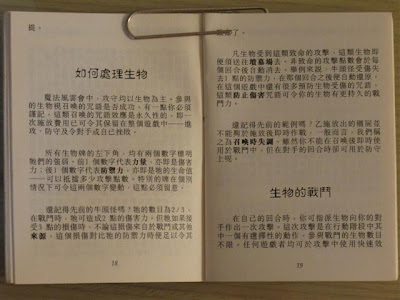 提。
如何處理生物
魔法風雲會中，攻守均以生物為主。參與
的生物視召喚的咒語是否成功。有一點你必須
謹記，每一次召喚的咒語效應是永久性的，即一
次施放費用已可令其保留在整個遊戲中——進
攻、防守及令對手或自己挫敗。
所有生物牌的左下角，均有兩個數字標明
牠們的强弱。前1個數字代表力量，亦即是傷害
力；後1個數字代表防禦力，亦即是牠的生命值
——可以抵擋多少攻擊點數。特別的牌在個別
情況下可令這兩個數字變動，這點必須留意。
還記得先前的牛頭怪嗎？牠的數目為2/3，
在戰鬥時，牠可造成2點的傷害力，但如果接受
3點的損傷時，不論這損傷來自於戰鬥或其他
來源，這個損傷對比牠的防禦力時便足以令其
18
凡生物受到這類致命的攻擊，這類生物即
便須送往墳墓場去。非致命的攻擊點數會於每
個回合後自動消去。舉例來說，牛頭怪受傷失
去1點的防禦力，在那個回合之後便自動還原。
在這個遊戲中還有很多預防生物受傷的咒語，
這類防止傷害咒語可令你的生物有更持久的戰
鬥力。
還記得先前的範例嗎？乙施放出的殭屍並
不能夠於施放後即時作戰，一般而言，我們稱之
為召喚時失調。雖然你不可以在召喚後即時使用
於戰鬥中，但在對手的回合時卻可用於防守
上呢。
生物的戰鬥
在自己的回合時，你可指派生物向你的對
手作出一次攻擊。這次攻擊是在行動階段中其
中一個有選擇性的動作，參與戰鬥的生物數目
不限。任何遊戲者均可於攻擊中使用快速效
19